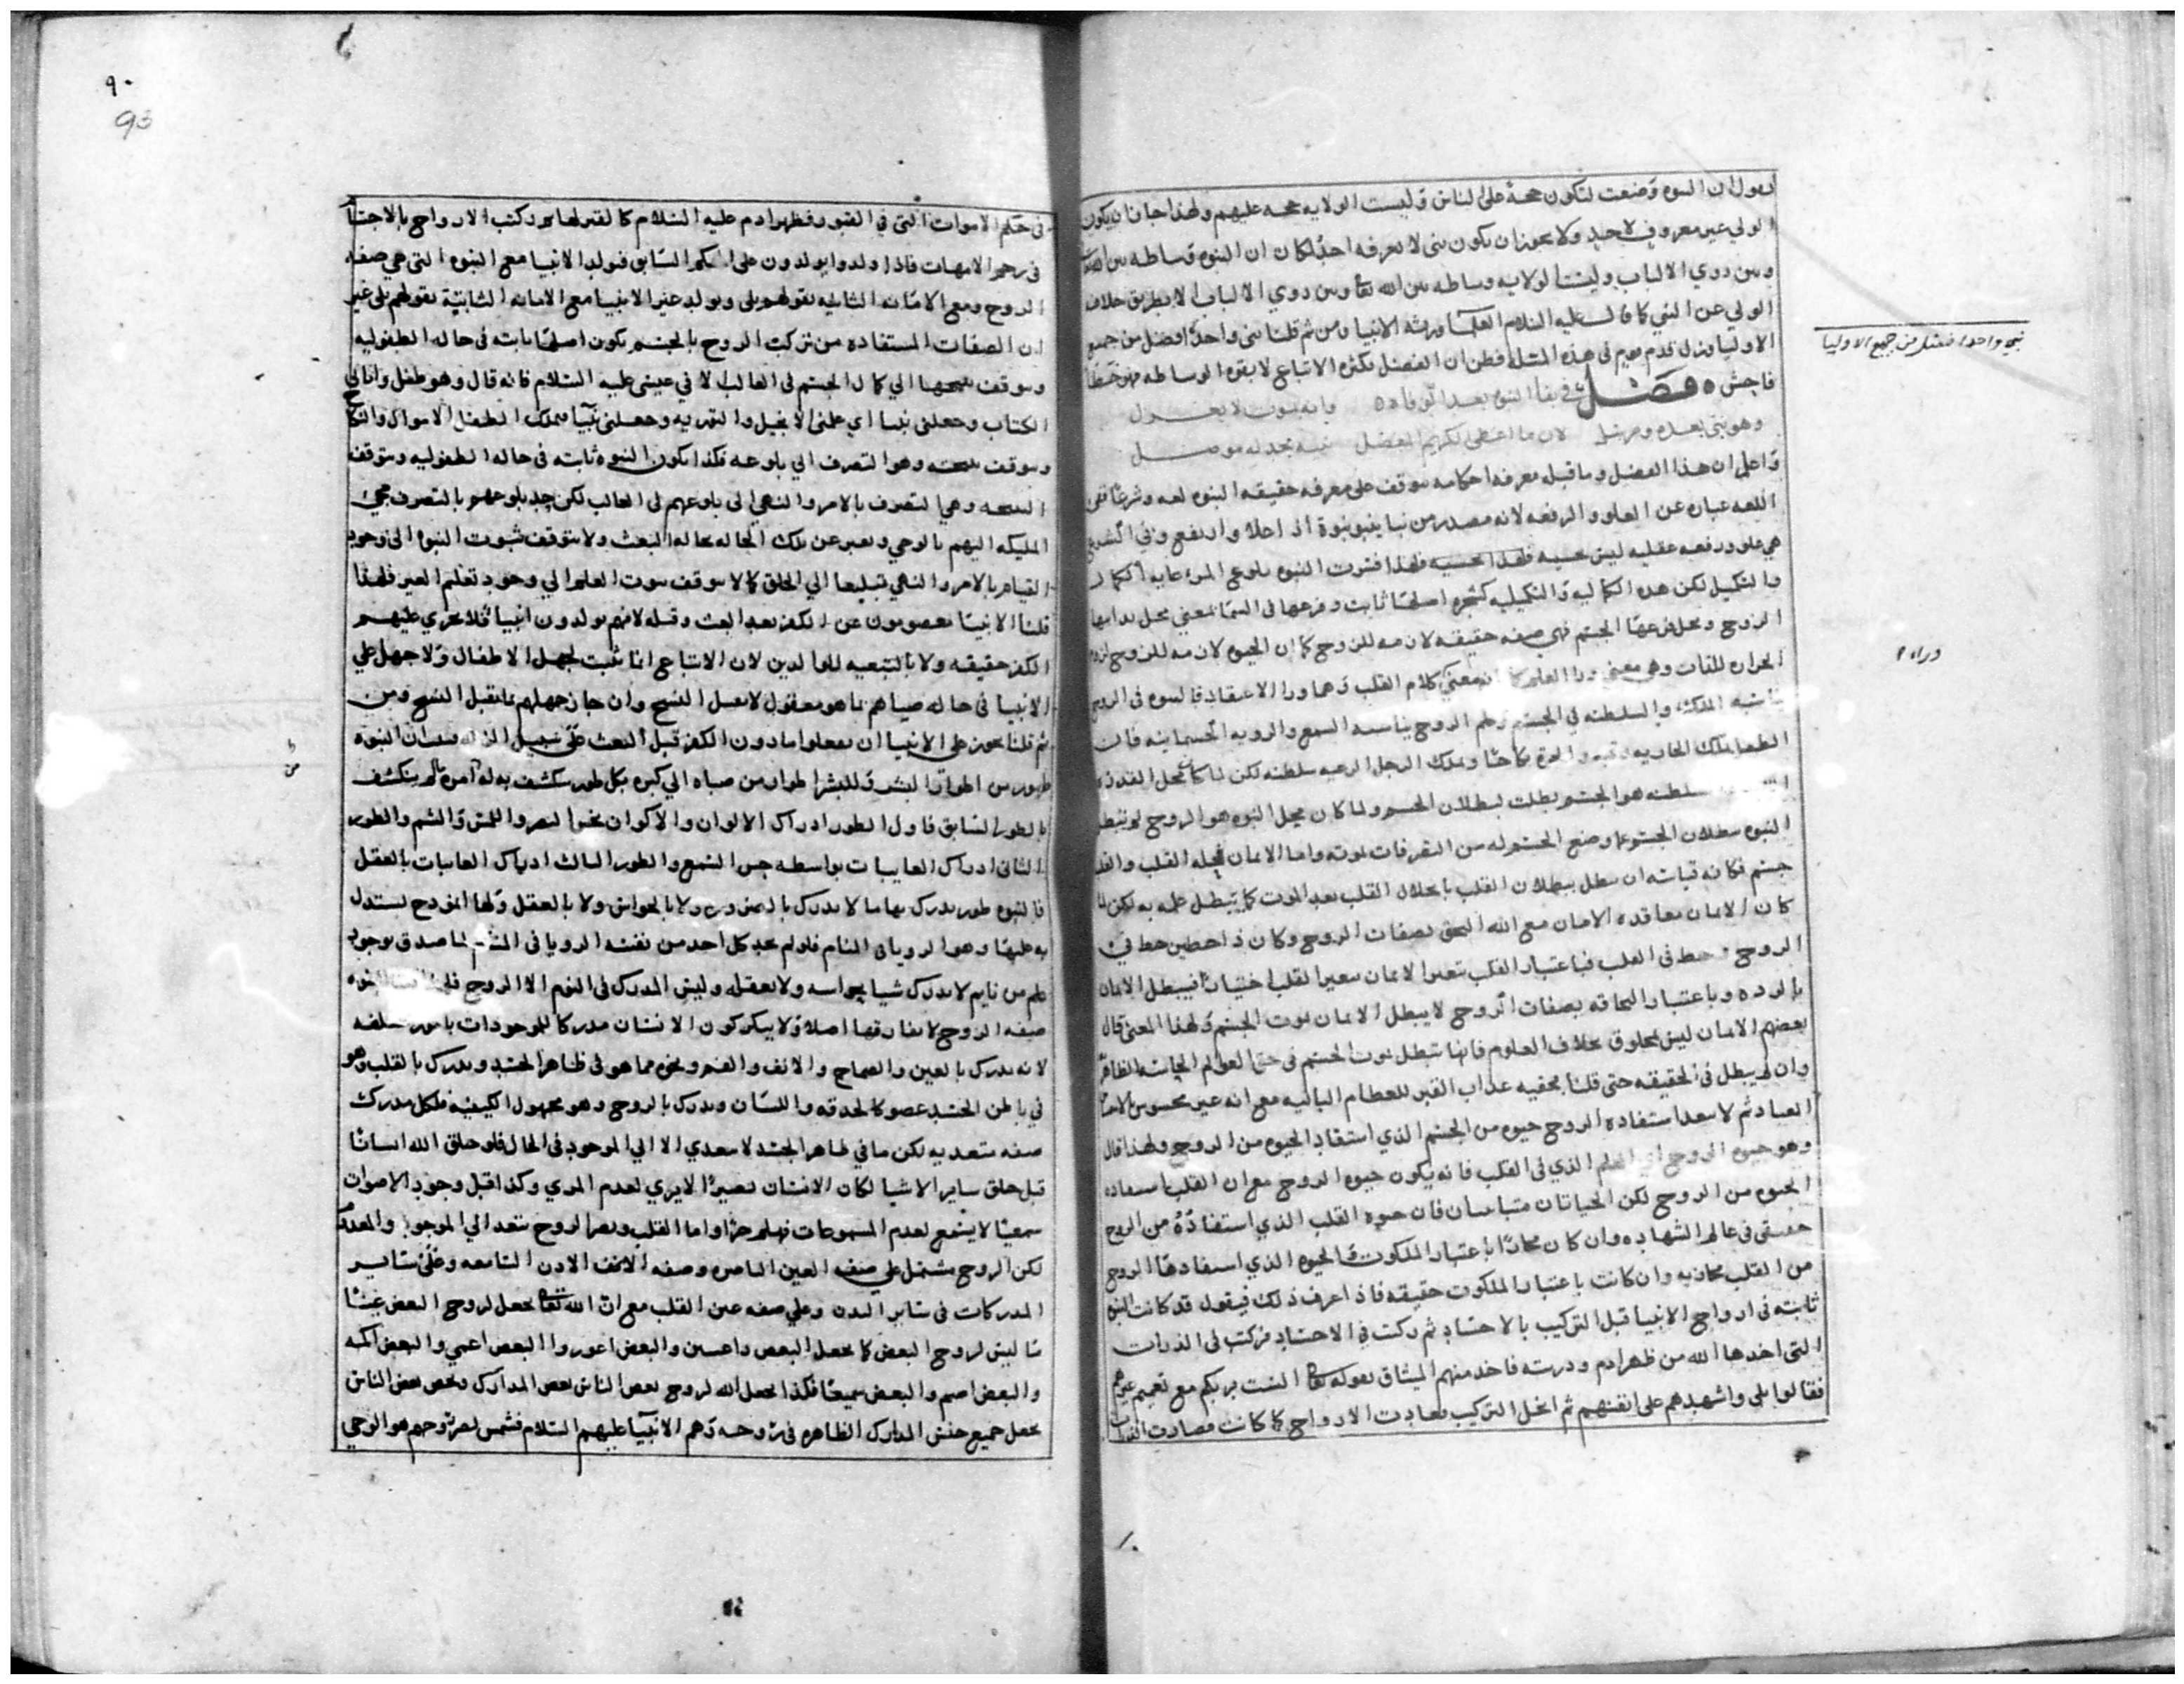 نقول ان النبوه وضعت لتكون حجة على الناس وليست الولايه حجه عليهم ولهذا جاز ان يكون
الولي غير معروف لاحد ولا يجوز ان يكون نبي لا يعرفه احد لكان ان النبوه وساطه بين الله
وبين ذوي الالباب وليست الولايه وساطه بين الله تعا وبين ذوي الالباب الا بطريق خلاف
الولي عن النبي كما قال عليه السلام العلما ورثه الانبيا ومن ثم قلنا نبي واحد افضل من جميع
الاوليا وزل قدم قوم في هذه المسئله فظن ان الفضل بكثره الاتباع لا بقوه الوساطه فهو خطا
فاحش ه فصل في بقا النبوه بعد الوفاه وانه بموت لا يعزل
وهو نبي بعده ومرسل لان ما اعطى الكريم المفضل
واعلم ان هذا الفصل وما قبله معرفه احكامه موقف على معرفه حقيقه النبوه لغه وشرعا ففي
اللغه عباره عن العلو والرفعه لانه مصدر من نبا ينبو نبوة اذا علا وارتفع وفي الشرع
هي علو ورفعه عقليه ليس حسيه فلهذا فسرت النبوه بلوغ المرء غايه الكمال
والتكميل لكن هذه الكماليه والتكميليه كشجره اصلها ثابت وفرعها في السما يعني محل بدايها
الروح ومحل فرعها الجسم فهي صفه حقيقه لازمه للروح كما ان الحيوه لازمه للروح
وهي معنى ورا العلم كما ان معنى كلام القلب وهما ورا الاعتقاد فالنبوه في الروح
تناسبه الملك والسلطنه في الجسم وعلم الروح يناسبه السمع والرويه الجسمانيه فان
سلطنه هو الجسم بطلت ببطلان الجسم ولما كان محل النبوه هو الروح لم تبطل
النبوه ببطلان الجسم ومنع الجسم له من التصرفات بموته واما الايمان فمحله القلب والقلب
جسم فكانه قياسه ان يبطل ببطلان القلب بانحلال القلب بعد الموت كما يبطل علمه به لكن لما
كان الايمان معاقده الامان مع الله التحق بصفات الروح وكان ذا حظين حظ في
الروح وحظ في القلب فباعتبار القلب يتغير الايمان بتغير القلب اختيارا فيبطل الايمان
بالرده وباعتبار التحاقه بصفات الروح لا يبطل الايمان بموت الجسم ولهذا المعنى قال
بعضهم الايمان ليس مخلوق بخلاف العلوم فانها تبطل بموت الجسم في حق العوالم الحياتيه الظاهر
وان لم يبطل في الحقيقه حتى قلنا بحقيه عذاب القبر للعظام الباليه مع انه غير محسوس
العباد ثم لا يبعد استفاده الروح حيوه من الجسم الذي استفاد الحيوه من الروح ولهذا قال
وهو حيوه الروح اي العلم الذي في القلب فانه يكون حيوه الروح مع ان القلب استفاده
الحيوه من الروح لكن الحياتان متباينان فان حيوه القلب الذي استفاده من الروح
حقيقي في عالم الشهاده وان كان مجازا باعتبار الملكوت والحيوه الذي استفادها الروح
من القلب مجازيه وان كانت باعتبار الملكوت حقيقه فاذا عرف ذلك فيقول قد كانت النبوه
ثابته في ارواح الانبيا قبل التركيب بالاجساد ثم ركبت في الاجساد فركبت في الذرات
التي اخذها الله من ظهر ادم وذريته فاخذ منهم الميثاق بقوله تعا الست بربكم مع تعميم غيرهم
فقالوا بلى واشهدهم على انفسهم ثم انحل التركيب فعادت الارواح كما كانت فصارت الذرات
نبي واحد افضل من جميع الاوليا
٩٠
90
في حكم الاموات التي في القبور فظهر ادم عليه السلام كالقبر لها ثم ركبت الارواح بالاجساد
في رحم الامهات فاذا ولدوا يولدون على الحكم السابق فولد الانبيا مع النبوه التي هي صفه
الروح ومع الامانه الثانيه بقولهم بلى ويولد غير الانبيا مع الامانه الثابتة بقولهم بلى غير
ان الصفات المستفاده من تركيب الروح بالجسم يكون اصلها ثابته في حاله الطفوليه
ويتوقف نتيجتها الي كمال الجسم في الغالب لا في عيسى عليه السلام فانه قال وهو طفل واتاني
الكتاب وجعلني نبيا اي علمني الانجيل والتوريه وجعلني نبيا كملك الطفل الاموال والنكاح
ويتوقف نتيجته وهو التصرف الي بلوغه فكذا يكون النبوه ثابته في حاله الطفوليه ويتوقف
النتيجه وهي التصرف بالامر والنهي الى بلوغهم في الغالب لكن عند بلوغهم بالتصرف مجئ
المليكه اليهم بالوحي ونعبر عن تلك الحاله بحاله البعث ولا يتوقف ثبوت النبوه الى وجود
القيام بالامر والنهي تبليغها الي الخلق كما لا يتوقف ثبوت العلم الي وجود تعلم الغير فلهذا
قلنا الانبيا معصومون عن الكفر بعد البعث وقبله لانهم يولدون انبيا فلا يجري عليهم
الكفر حقيقه ولا بالتبعيه للوالدين لان الاتباع انما ثبت لجهل الاطفال ولا جهل على
الانبيا في حاله صباهم بما هو معقول لا يقبل النسخ وان جاز جهلهم بما يقبل النسخ ومن
ثم قلنا يجوز على الانبيا ان يفعلوا ما دون الكفر قبل البعث على سبيل الزله فبيان النبوه
طور من اطوار البشر وللبشر اطوار من صباه الي كبره بكل طور ينكشف به له امر ما لم ينكشف
بالطور السابق فاول الطور ادراك الالوان والاكوان نحو البصر واللمس والشم والطور
الثاني ادراك الغايبات بواسطه حس السمع والطور الثالث ادراك الغايبات بالعقل
فالنبوه طور يدرك بها ما لا يدرك بالبصر ولا بالحواس ولا بالعقل ولها انموذج يستدل
به عليها وهو الرويا في المنام فلو لم يجد كل احد من نفسه الرويا في المنام لما صدق بوجود
علم من نايم لا يدرك شيا بحواسه ولا بعقله وليس المدرك في النوم الا الروح
صفه الروح لا يفارقها اصلا ولا ينكر كون الانسان مدركا للموجودات بامور مختلفه
لانه يدرك بالعين والصماخ والانف والفم ونحوه مما هو في ظاهر الجسد ويدرك بالقلب وهو
في باطن الجسد عضو كالحدقه واللسان ويدرك بالروح وهو مجهول الكيفيه فلكل مدرك
صفه متعديه لكن ما في ظاهر الجسد لا يتعدي الا الي الموجود في الحال فلو خلق الله انسانا
قبل خلق ساير الاشيا لكان الانسان بصيرا لا يري لعدم المري وكذا قبل وجود الاصوات
سميعا لا يسمع لعدم المسموعات فهلم جرا واما القلب وبصر الروح تتعدا الي الموجود والمعدوم
لكن الروح مشتمل على صفه العين الباصره وصفه الانف الاذن السامعه وعلى ساير
المدركات في ساير البدن وعلي صفه عين القلب مع ان الله تعا يجعل لروح البعض عينا
ما ليس لروح البعض كما يجعل البعض ذا عينين والبعض اعور والبعض اعمي والبعض اكمه
والبعض اصم والبعض سميعا فكذا يجعل الله لروح بعض الناس بعض المدارك ويخص بعض الناس
بجعل جميع جنس المدارك الظاهره في روحه وهم الانبيا عليهم السلام فشمس بصر روحهم هو الوحي